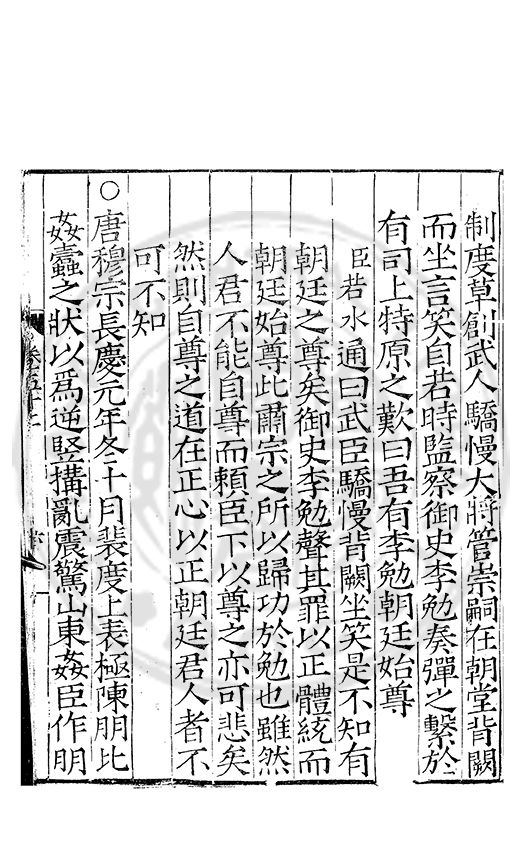 制度草創武人驕慢大將管崇嗣在朝堂背闕
而坐言笑自若時監察御史李勉奏彈之繫於
有司上特原之歎曰吾有李勉朝廷始尊
臣若水通曰武臣驕慢背闕坐笑是不知有
朝廷之尊矣御史李勉聲其罪以正體統而
朝廷始尊此肅宗之所以歸功於勉也雖然
人君不能自尊而賴臣下以尊之亦可悲矣
然則自尊之道在正心以正朝廷君人者不
可不知
○唐穆宗長慶元年冬十月裴度上表極陳朋比
姦蠹之狀以爲逆竪搆亂震驚山東姦臣作朋